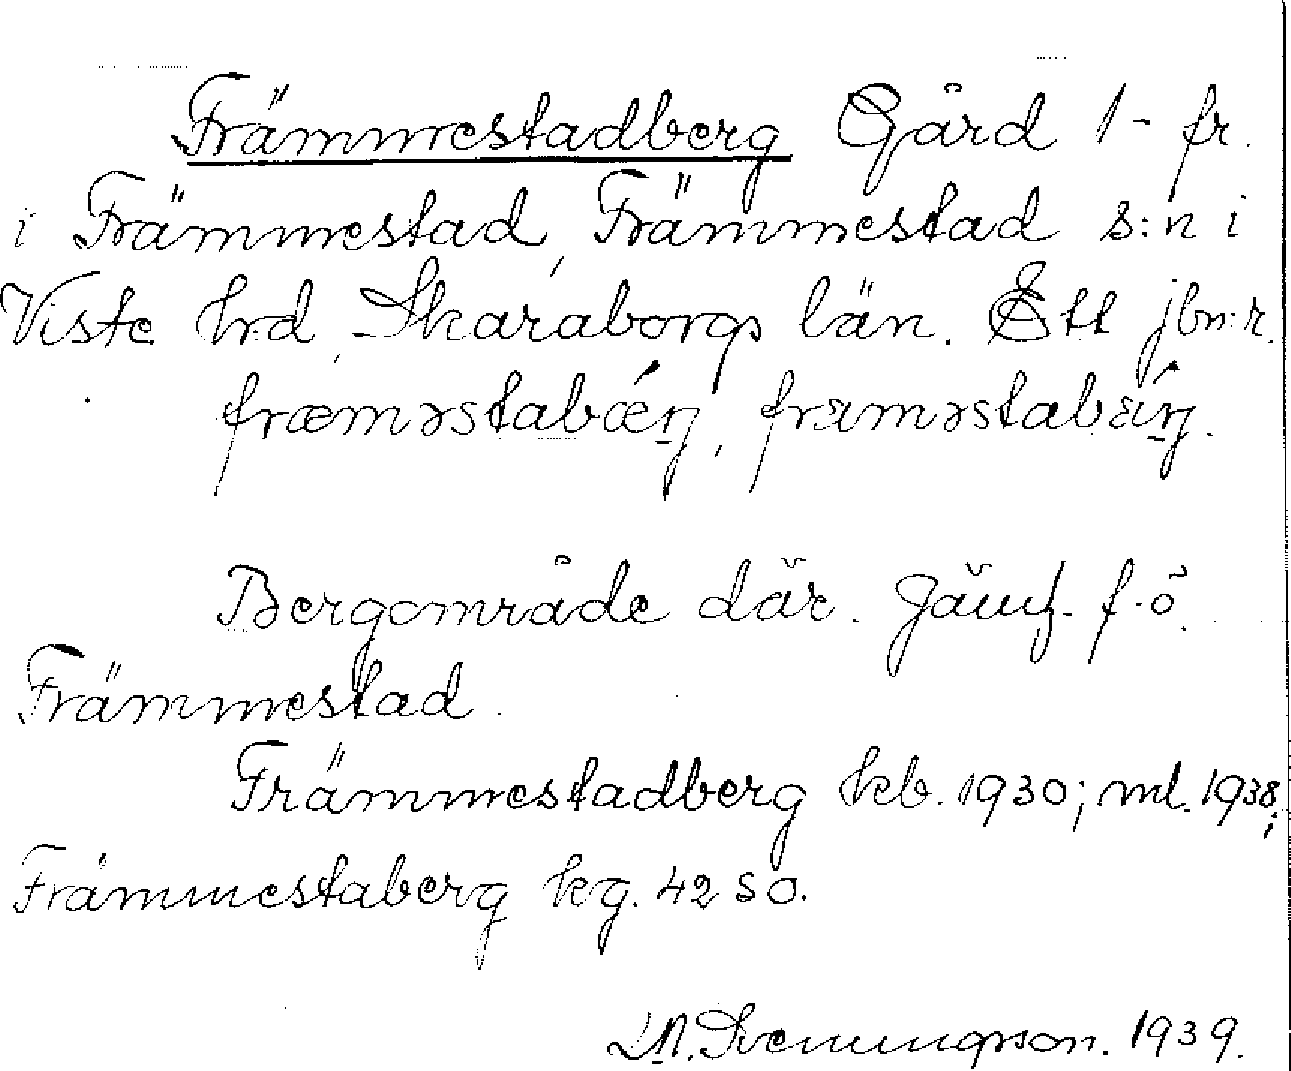 Främmestadberg Gård 1 - fr.
i Främmestad, Främmestad s:n i
Viste hrd, Skaraborgs län. Ett jbn:r.
fræməstabǽŋ, framəstabáŋ.
Bergområde där. Jämf. f.ö.
Främmestad.
Främmestadberg kb. 1930; ml. 1938;
Främmestaberg kg. 42 SO.
N. Svenungsson. 1939.